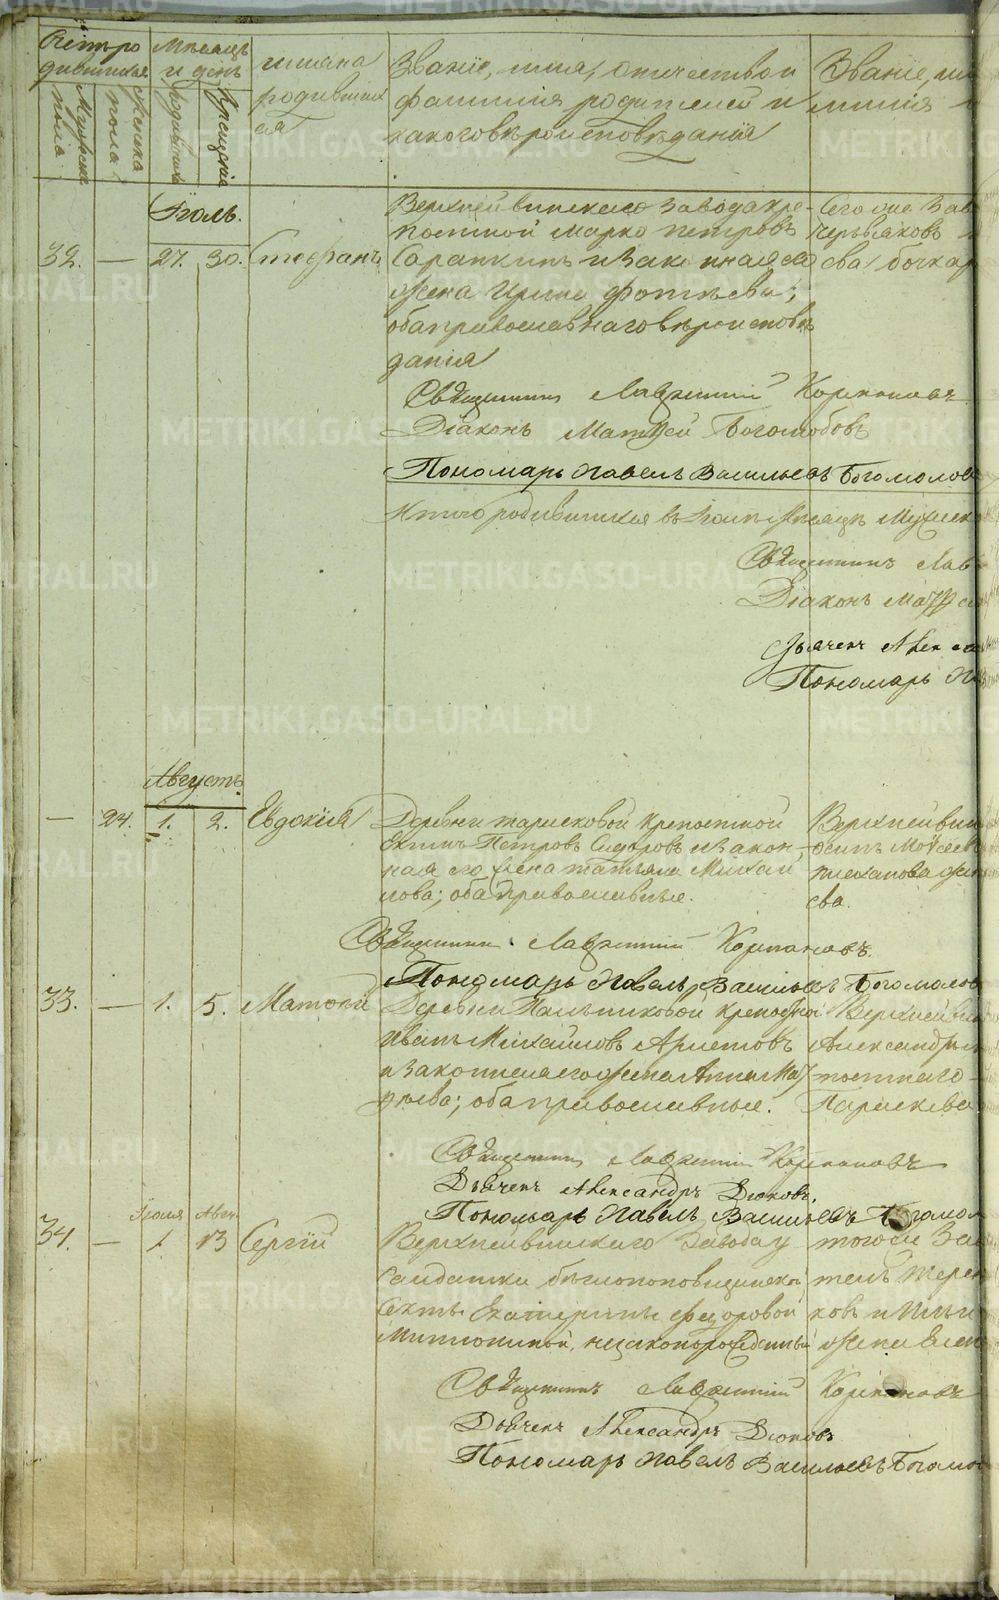 Счетъ ро
дившихся
Мѣсяцъ
и день
имяна
родивших
ся
Званіе, имя, отчество и
фамилія родителей и
какого вѣроисповѣданія
Званіе, им
милія
Мужеска
пола.
Женска
пола
рожденія
Крещенія
Іюль.
32. — 27. 30. Стефанъ
Верхнейвинскаго завода кре-
постной Марко Петровъ
Сарапкинъ и законная его
жена Ирина Фотіева;
оба православнаго вѣроисповѣ
данія
Сего же Зав
Червяковъ
ева Бочкар
Священникъ Лаврентий Корепановъ
Діаконъ Матфей Боголюбовъ
Пономарь Павелъ Васильевъ Богомолов
Итого родившихся въ Іюлѣ мѣсяцѣ Мужеск
Священникъ Лав
Діаконъ Матфе
Дьячекъ Алекса
Пономарь Па
Августъ.
— 24. 1. 2. Евдокія
Деревни Тарасковой крепостной
Петровъ Сидоровъ и закон-
ная его жена Татьяна Михаи
лова; оба православные.
Верхнейвин
осипъ Моисеев
Плеханова жен
ева.
Священникъ Лаврентий Корепановъ.
Пономарь Павелъ Васильевъ Богомолов
33. — 1. 5. Матфей
Деревни Пальниковой крепостной
Иванъ Михайловъ Аристовъ
и законная его жена Анна Мат
фѣева; оба православные.
Верхнейви
Александръ
постнаго
Параскева
Священникъ Лаврентий Корепановъ
Дьячекъ Александръ Дюковъ.
Пономарь Павелъ Васильевъ Богомол
Іюля Авгу.
34. — 1. 13 Сергій
Верхнейвинскаго Завода у
салдатки беглопоповщинской
секты Екатерины Федоровой
незаконорожденный
тогоже Зав
тель Терен
ковъ и
жена Елен
Священникъ Лаврентий Корепановъ
Дьячекъ Александръ Дюковъ
Пономарь Павелъ Васильевъ Богомол
METRIKI.GASO-URAL.RU